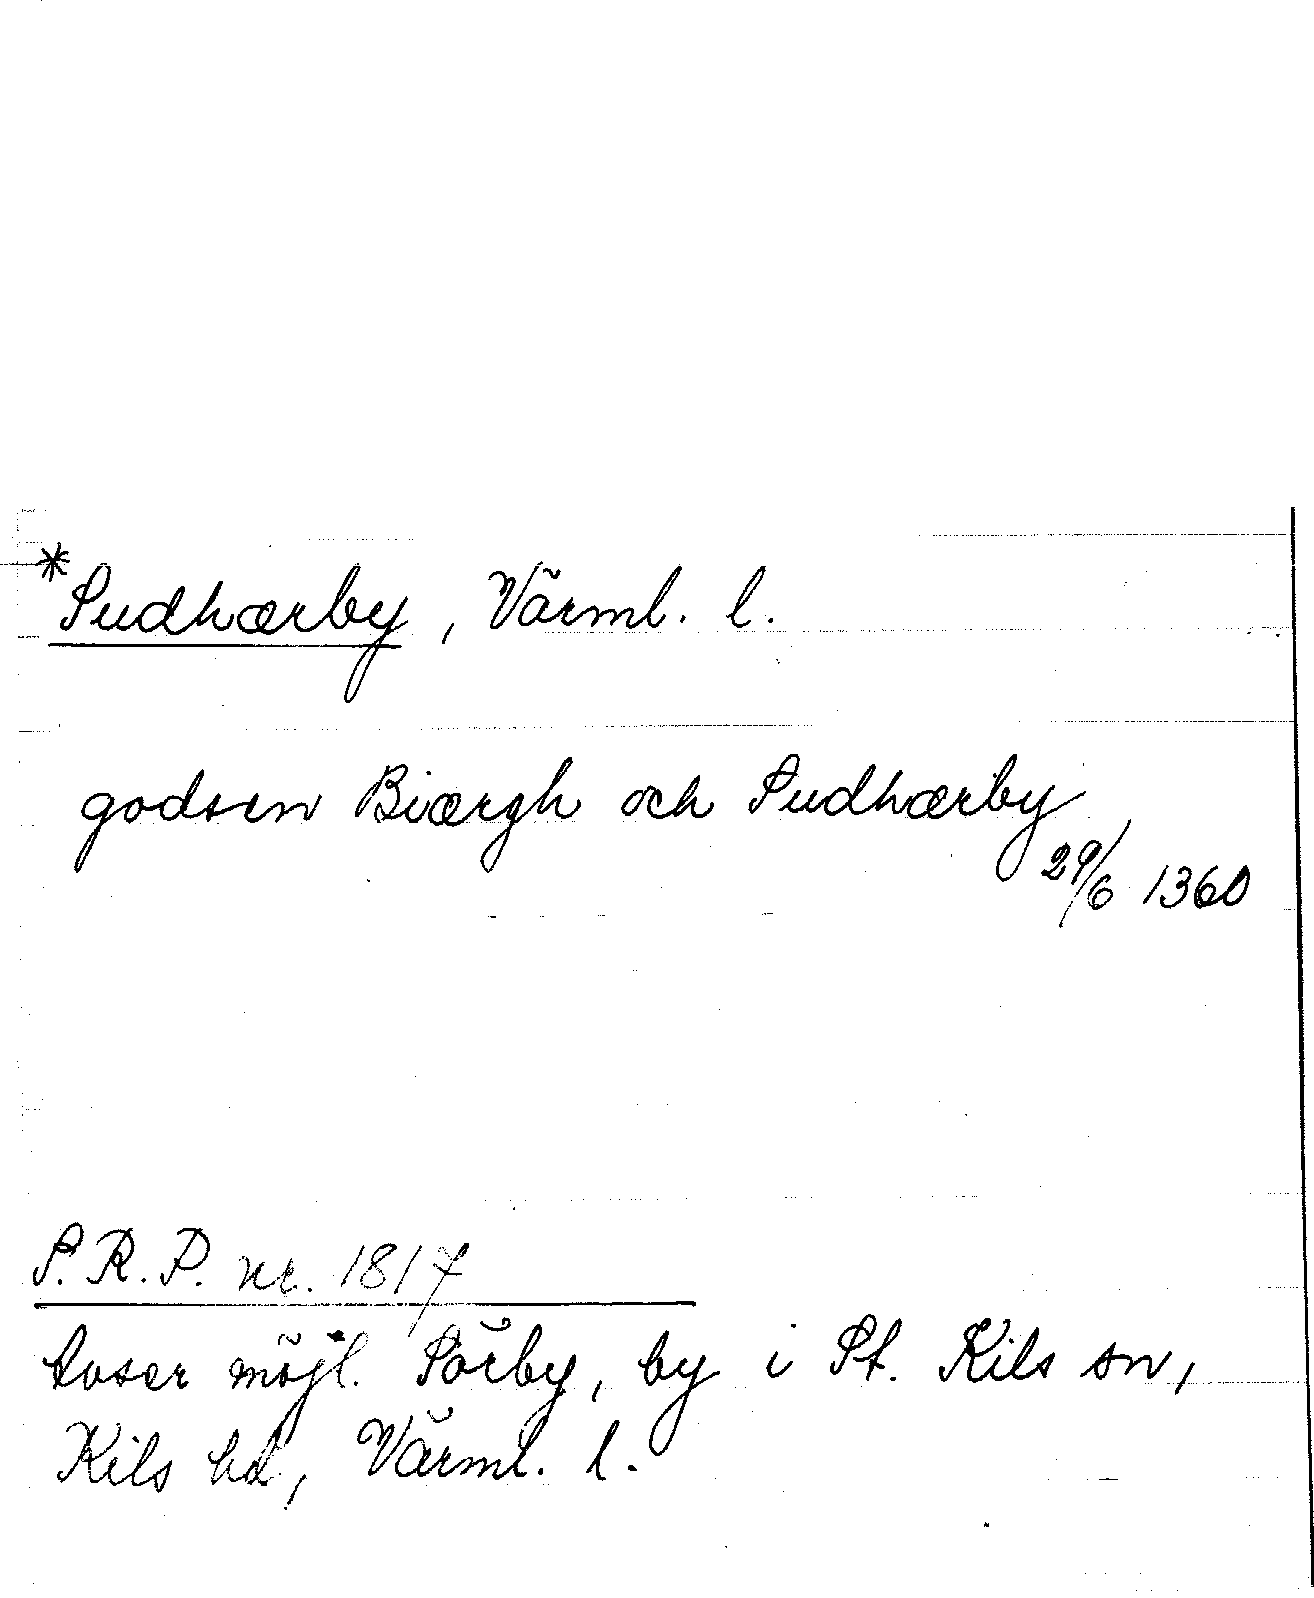 *Sudhærby, Värml. l.
godsen Biærgh och Sudhærby
29/6 1360
S.R.P. nr. 1817
avser möjl. Sörby, by i St. Kils sn,
Kils hd, Värml. l.